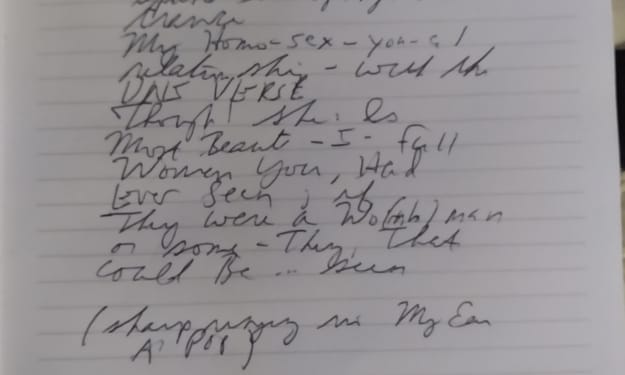 change
My Homo-sex-you-al
relationship - with the
UNI VERSE
Though she is
Most Beaut-I-full
Women You, Had
Ever Seen, if
They were a Wo(mb)man
or some-They, That
Could Be ... Seen
(sharp ringing in My Ear
A POP)